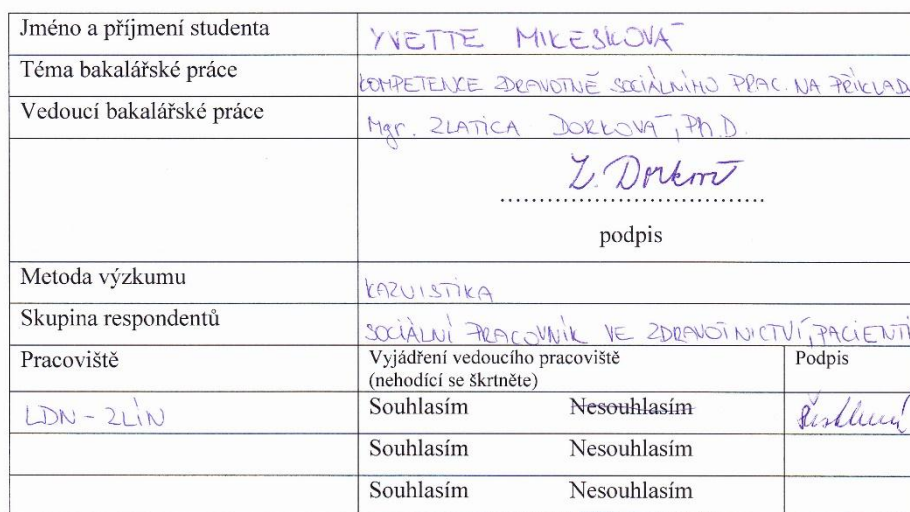 Jméno a příjmení studenta YVETTE MIKESKOVÁ
Téma bakalářské práce KOMPETENCE ZDRAVOTNĚ SOCIÁLNÍHO PRAC. NA PŘÍKLAD
Vedoucí bakalářské práce Mgr. ZLATICA DORKOVÁ, Ph.D.
Z. Dorková
podpis
Metoda výzkumu KAZUISTIKA
Skupina respondentů SOCIÁLNÍ PRACOVNÍK VE ZDRAVOTNICTVÍ, PACIENTI
Pracoviště Vyjádření vedoucího pracoviště Podpis
(nehodící se škrtněte)
LDN - ZLÍN Souhlasím Nesouhlasím
Souhlasím Nesouhlasím
Souhlasím Nesouhlasím